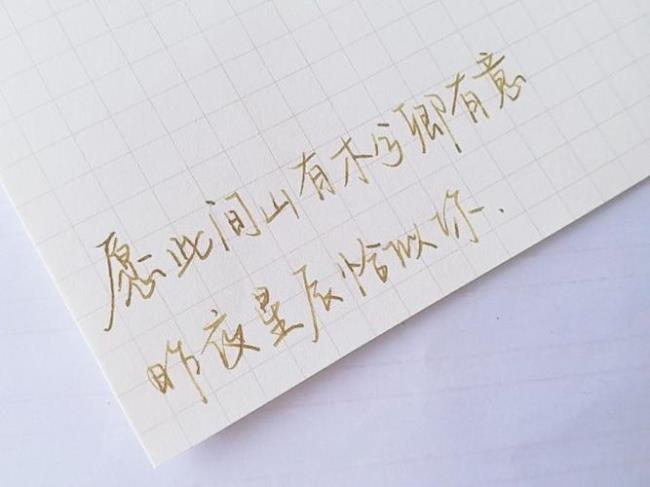 愿此间山有木兮卿有意
昨夜星辰恰似你.